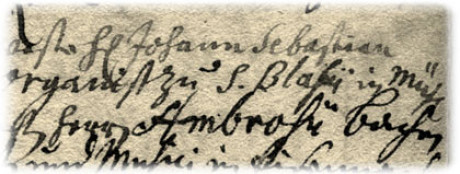 H Johann Sebastian
organist zu S. Blasij in Mü
Herrn Ambrosii Bachen
und Musici in